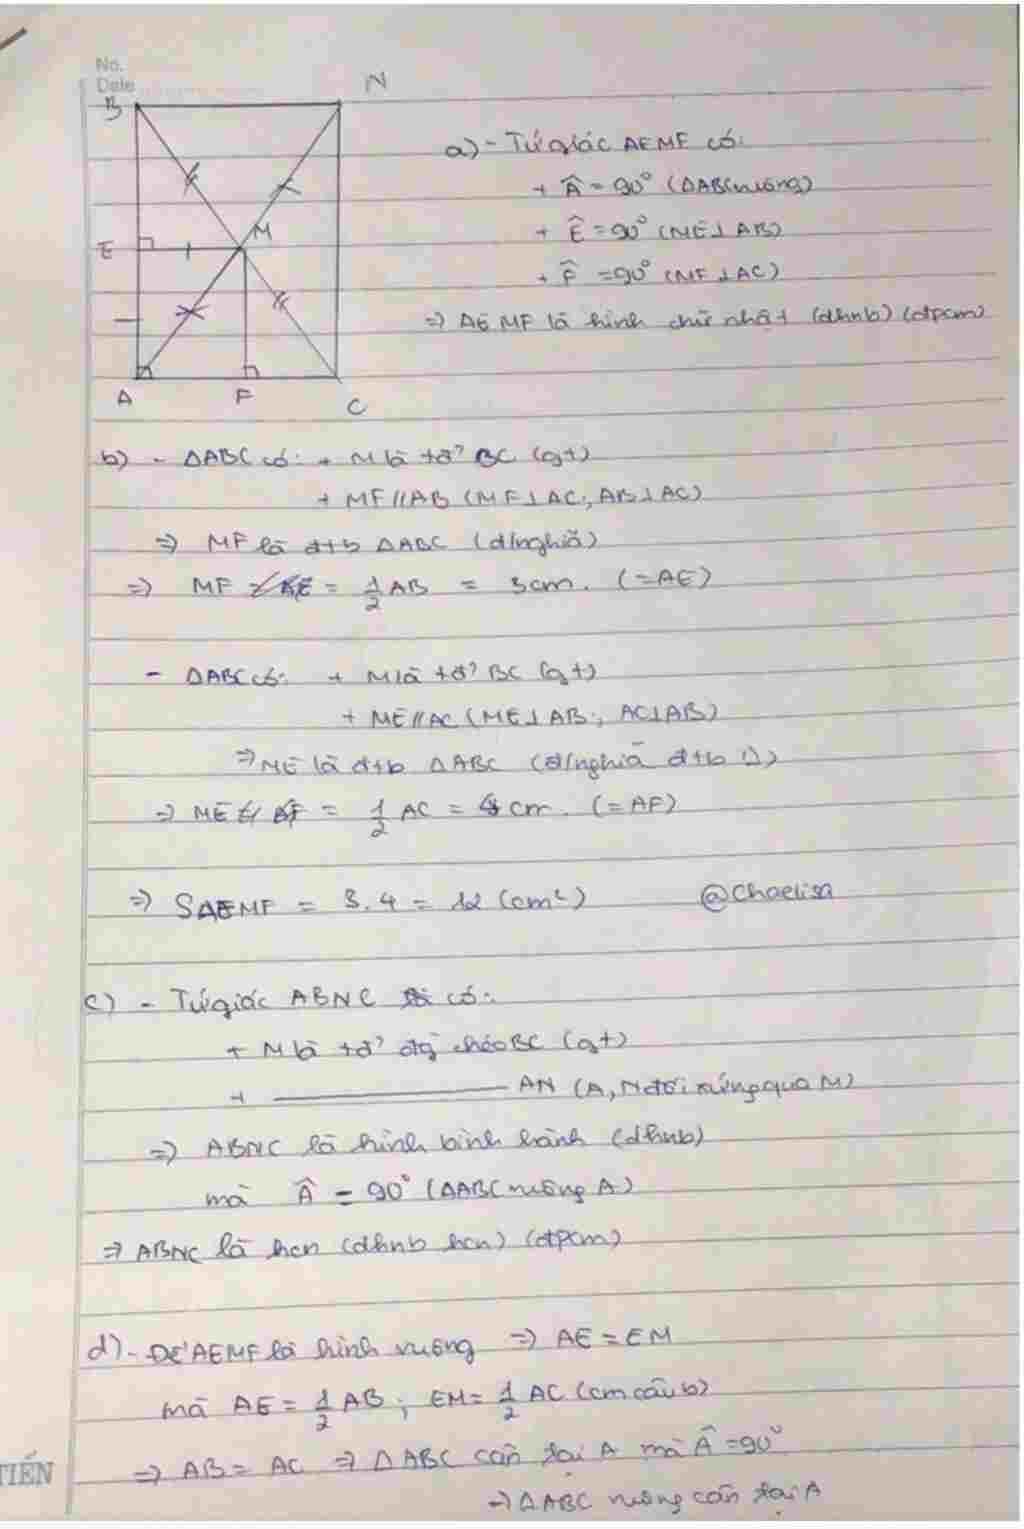 No.
Date
B
N
E
M
A
F
C
a) - Tứ giác AEMF có:
+ Â = 90° (ΔABC vuông)
+ Ê = 90° (ME ⊥ AB)
+ F̂ = 90° (MF ⊥ AC)
=> AEMF là hình chữ nhật (dhnb) (đpcm)
b) - ΔABC có: + M là tđ' BC (gt)
+ MF // AB (MF ⊥ AC; AB ⊥ AC)
=> MF là đtb ΔABC (đ/nghĩa)
=> MF = 1/2 AB = 3cm. (= AE)
- ΔABC có: + M là tđ' BC (gt)
+ ME // AC (ME ⊥ AB; AC ⊥ AB)
=> ME là đtb ΔABC (đ/nghĩa đtb Δ)
=> ME = 1/2 AC = 4cm. (= AF)
=> SAEMF = 3.4 = 12 (cm²) @Chaelisa
c) - Tứ giác ABNC có:
+ M là tđ' đg chéo BC (gt)
+ ———— AN (A, N đối xứng qua M)
=> ABNC là hình bình hành (dhnb)
mà Â = 90° (ΔABC vuông A)
=> ABNC là hcn (dhnb hcn) (đpcm)
d) - Để AEMF là hình vuông => AE = EM
mà AE = 1/2 AB; EM = 1/2 AC (cm câu b)
=> AB = AC => ΔABC cân tại A mà Â = 90°
=> ΔABC vuông cân tại A
TIẾN